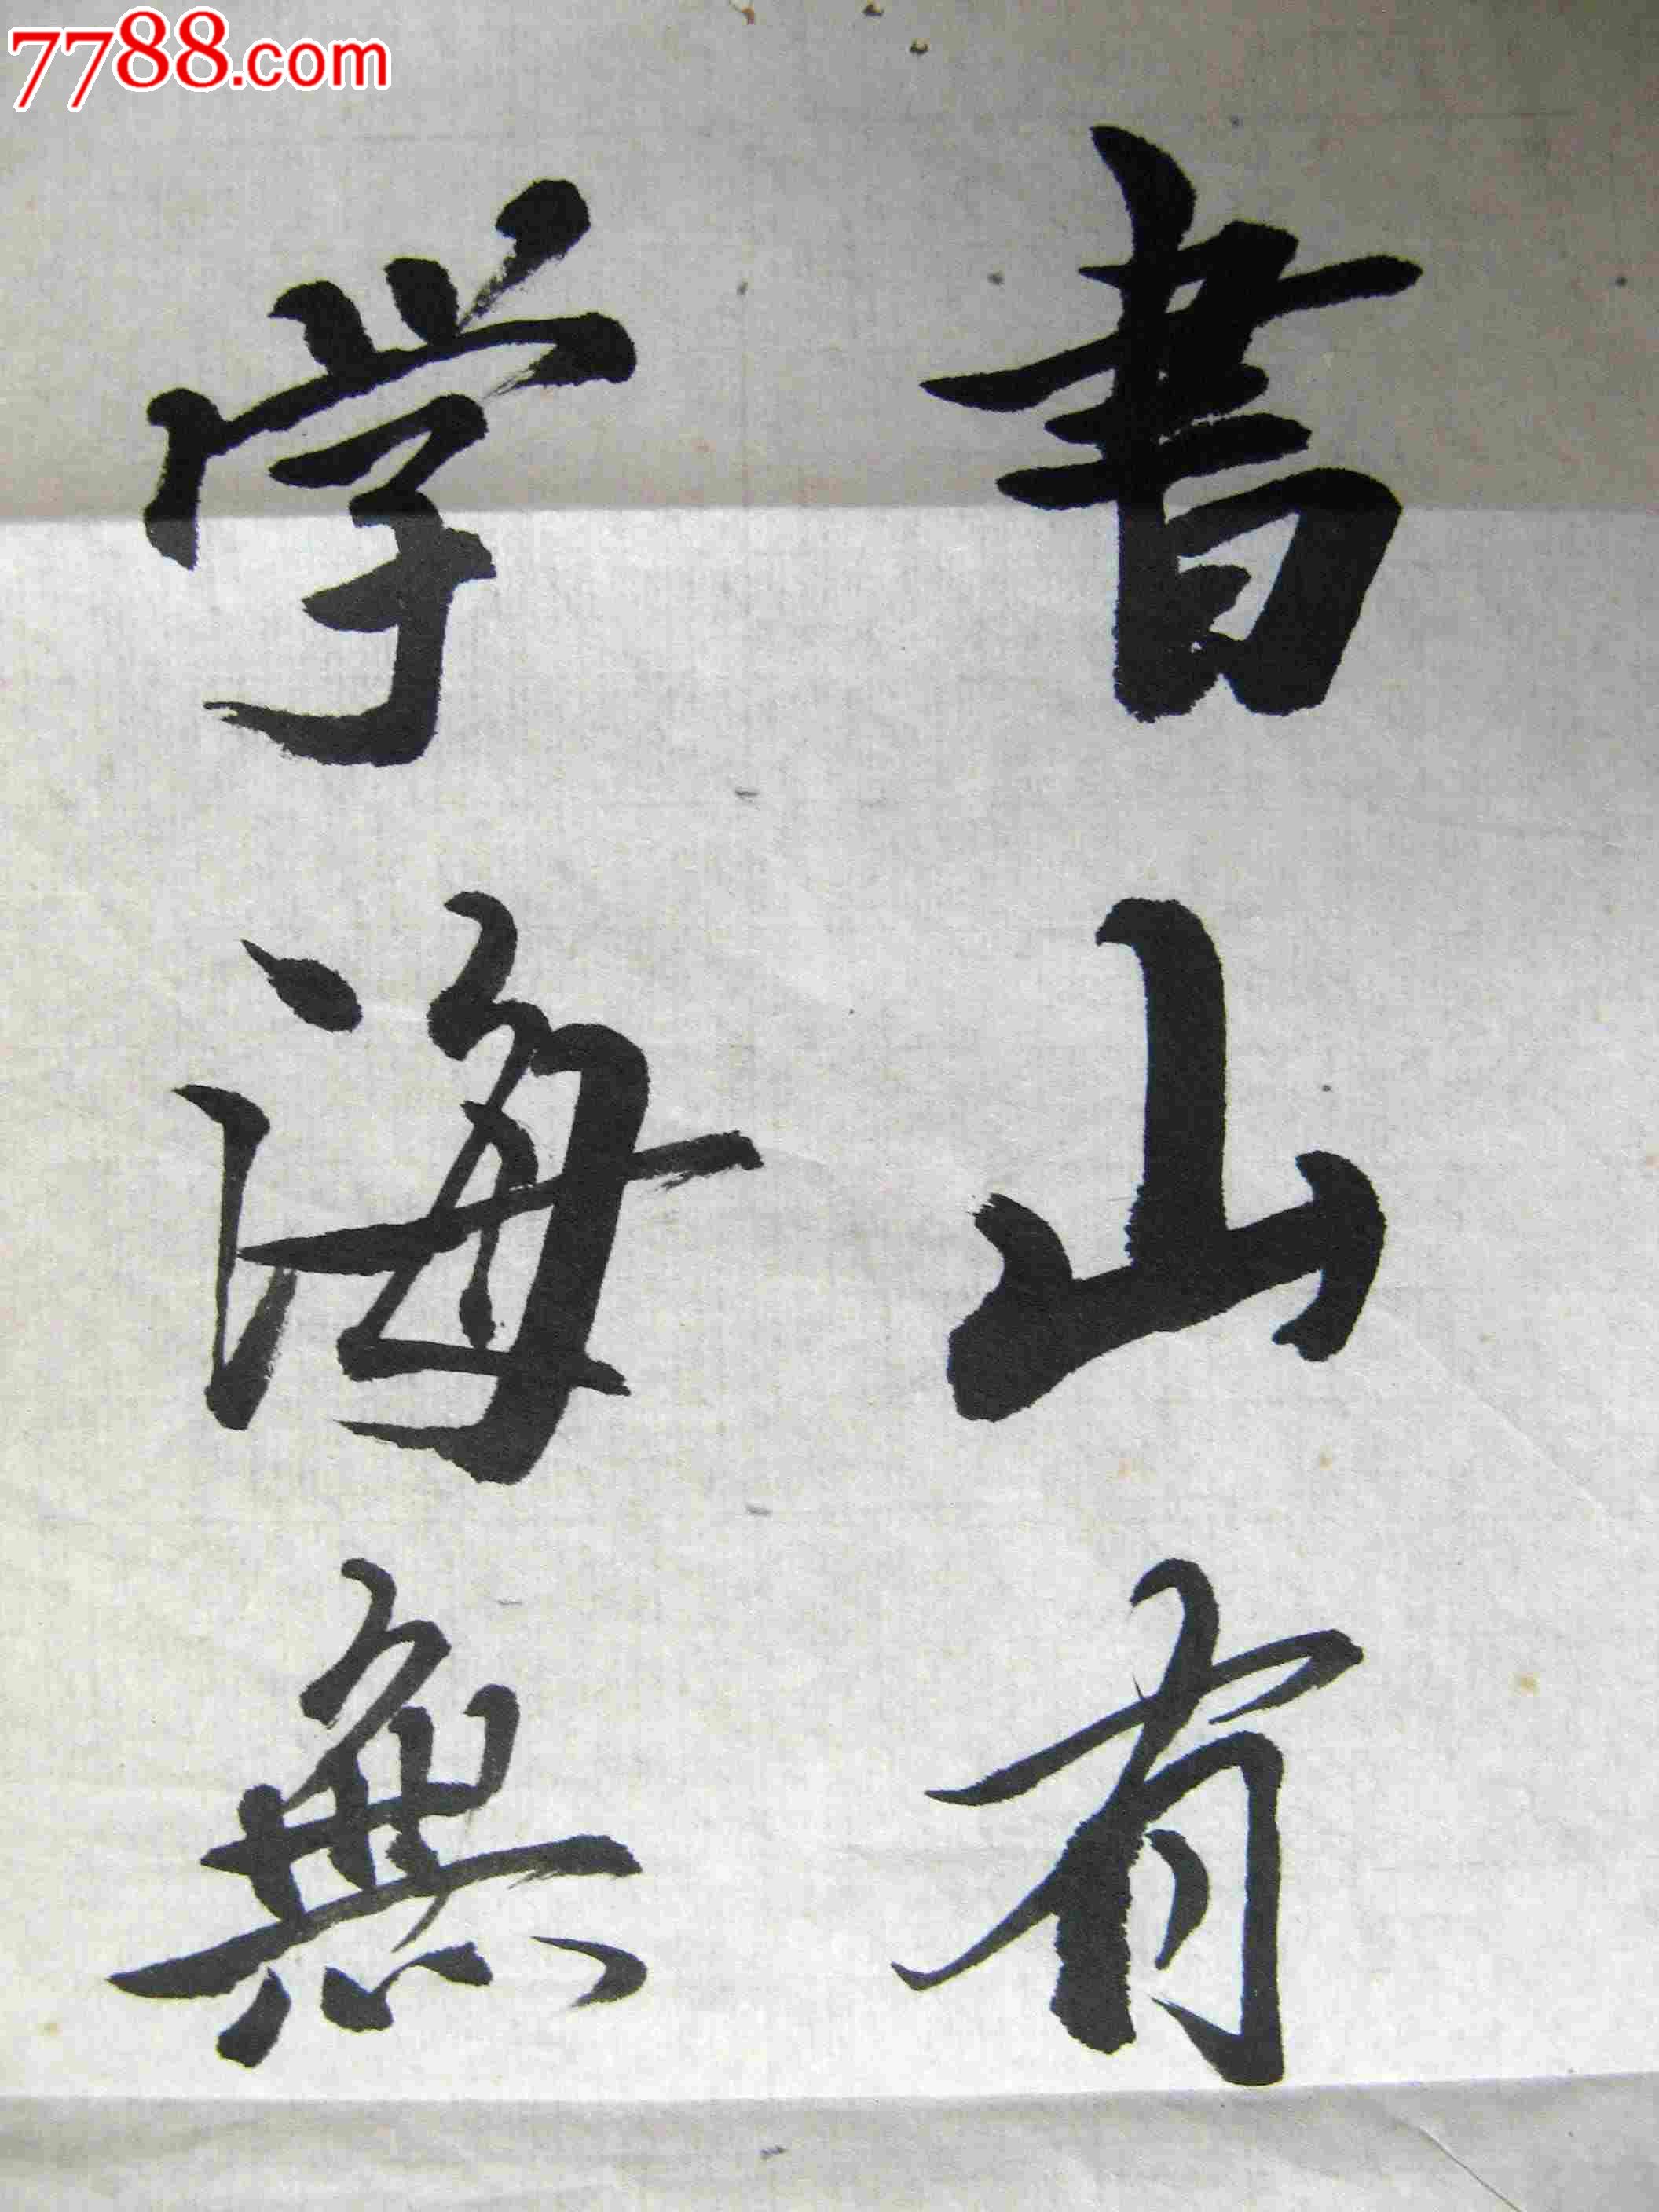 7788.com
書山有
学海無